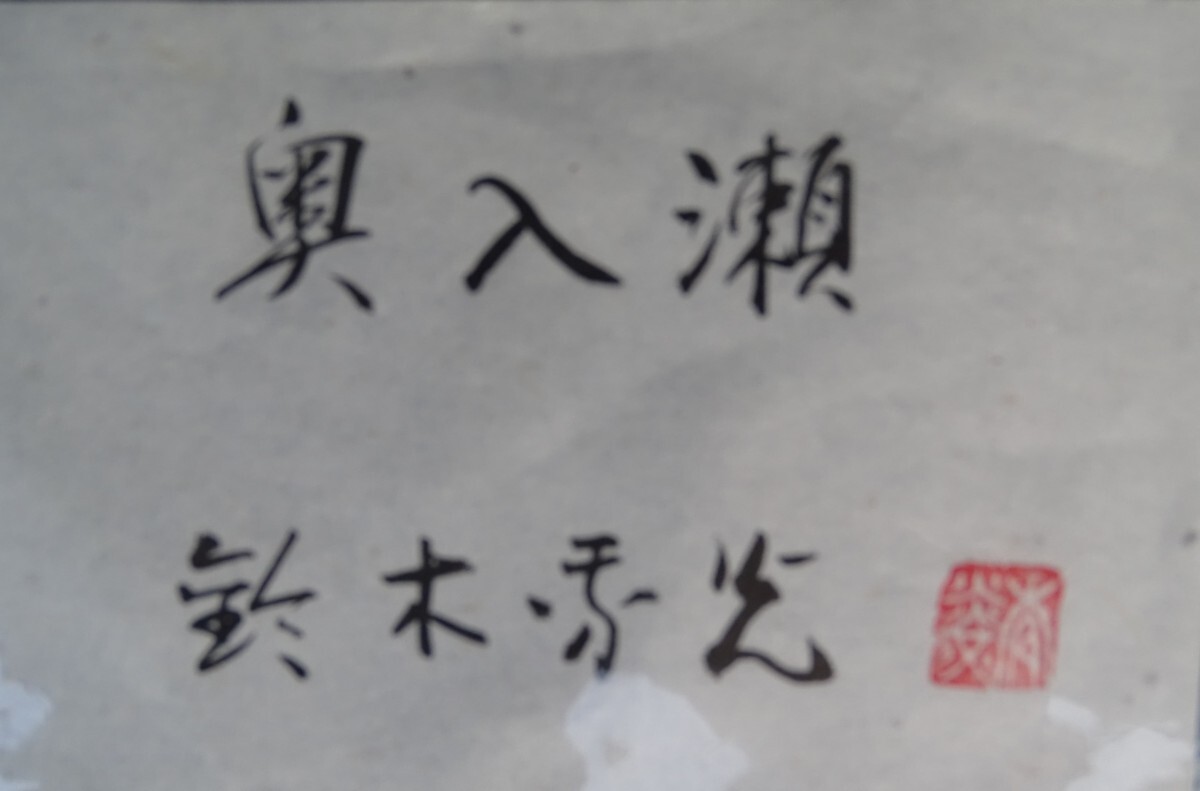 奥入瀬
鈴木秀光